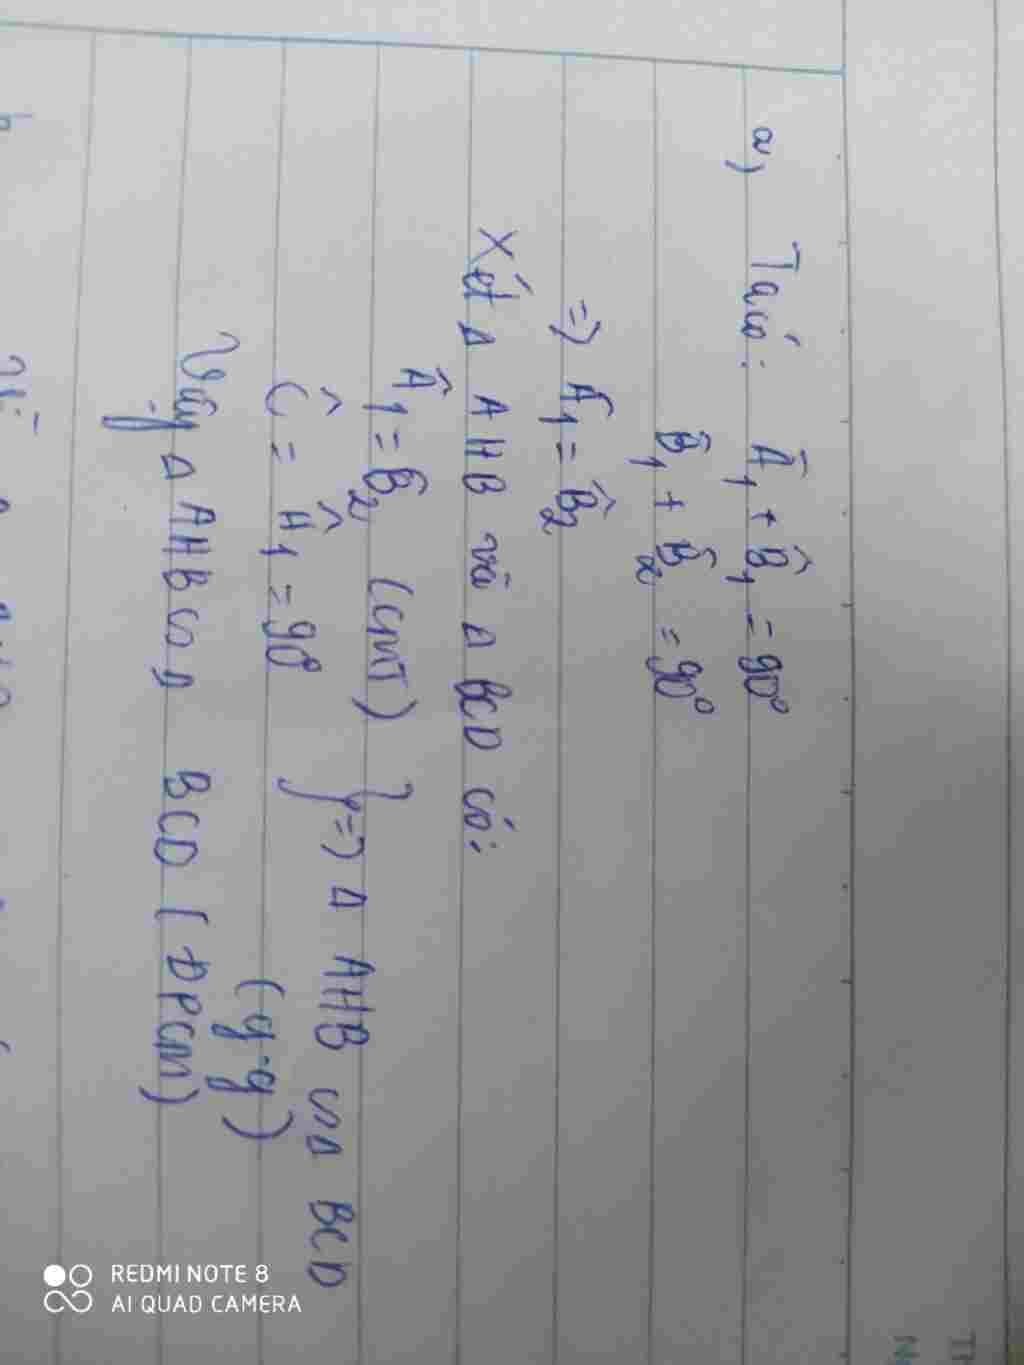 a) Ta có: Â₁ + B̂₁ = 90°
B̂₁ + B̂₂ = 90°
=> Â₁ = B̂₂
Xét Δ AHB và Δ BCD có:
Â₁ = B̂₂ (CMT)
Ĉ = Ĥ₁ = 90°
} => Δ AHB ∽ Δ BCD
(g.g)
Vậy Δ AHB ∽ Δ BCD (ĐPCM)
REDMI NOTE 8
AI QUAD CAMERA